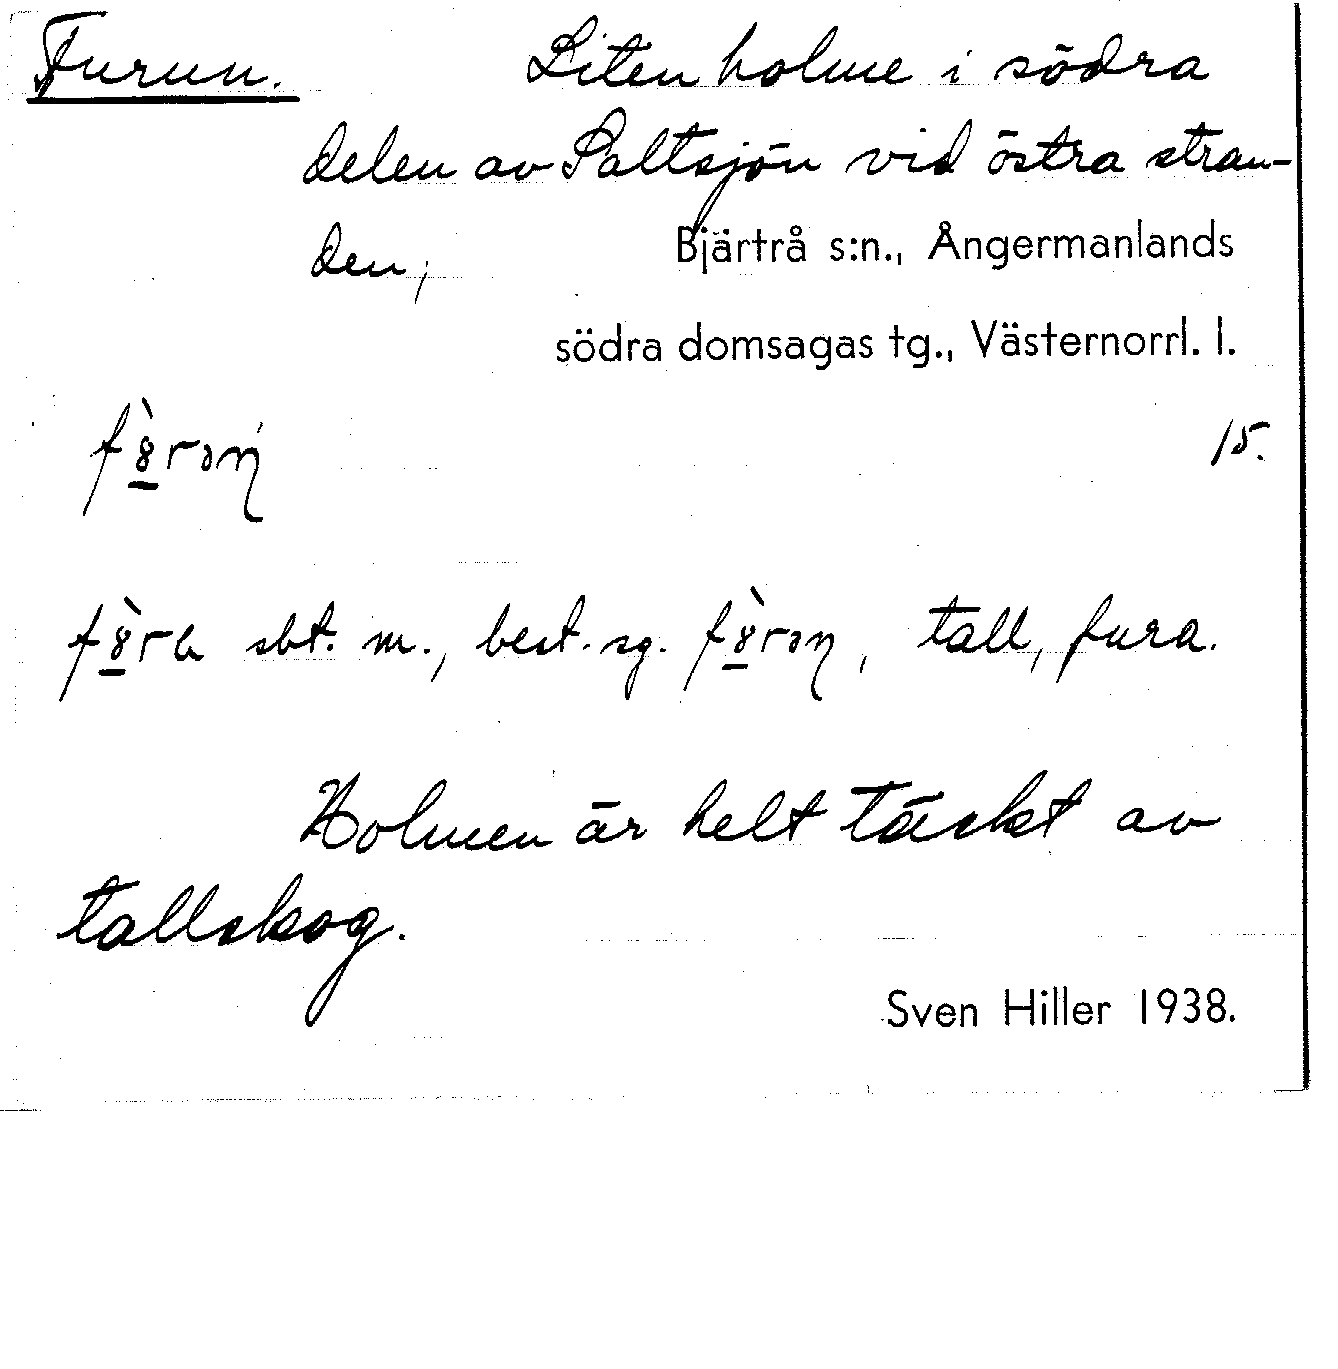 Furun. Liten holme i södra
delen av Saltsjön vid östra stran-
den; Bjärtrå s:n., Ångermanlands
södra domsagas tg., Västernorrl. l.
15.
sbt. m., best. sg. , tall, fura.
Holmen är helt täckt av
tallskog.
Sven Hiller 1938.